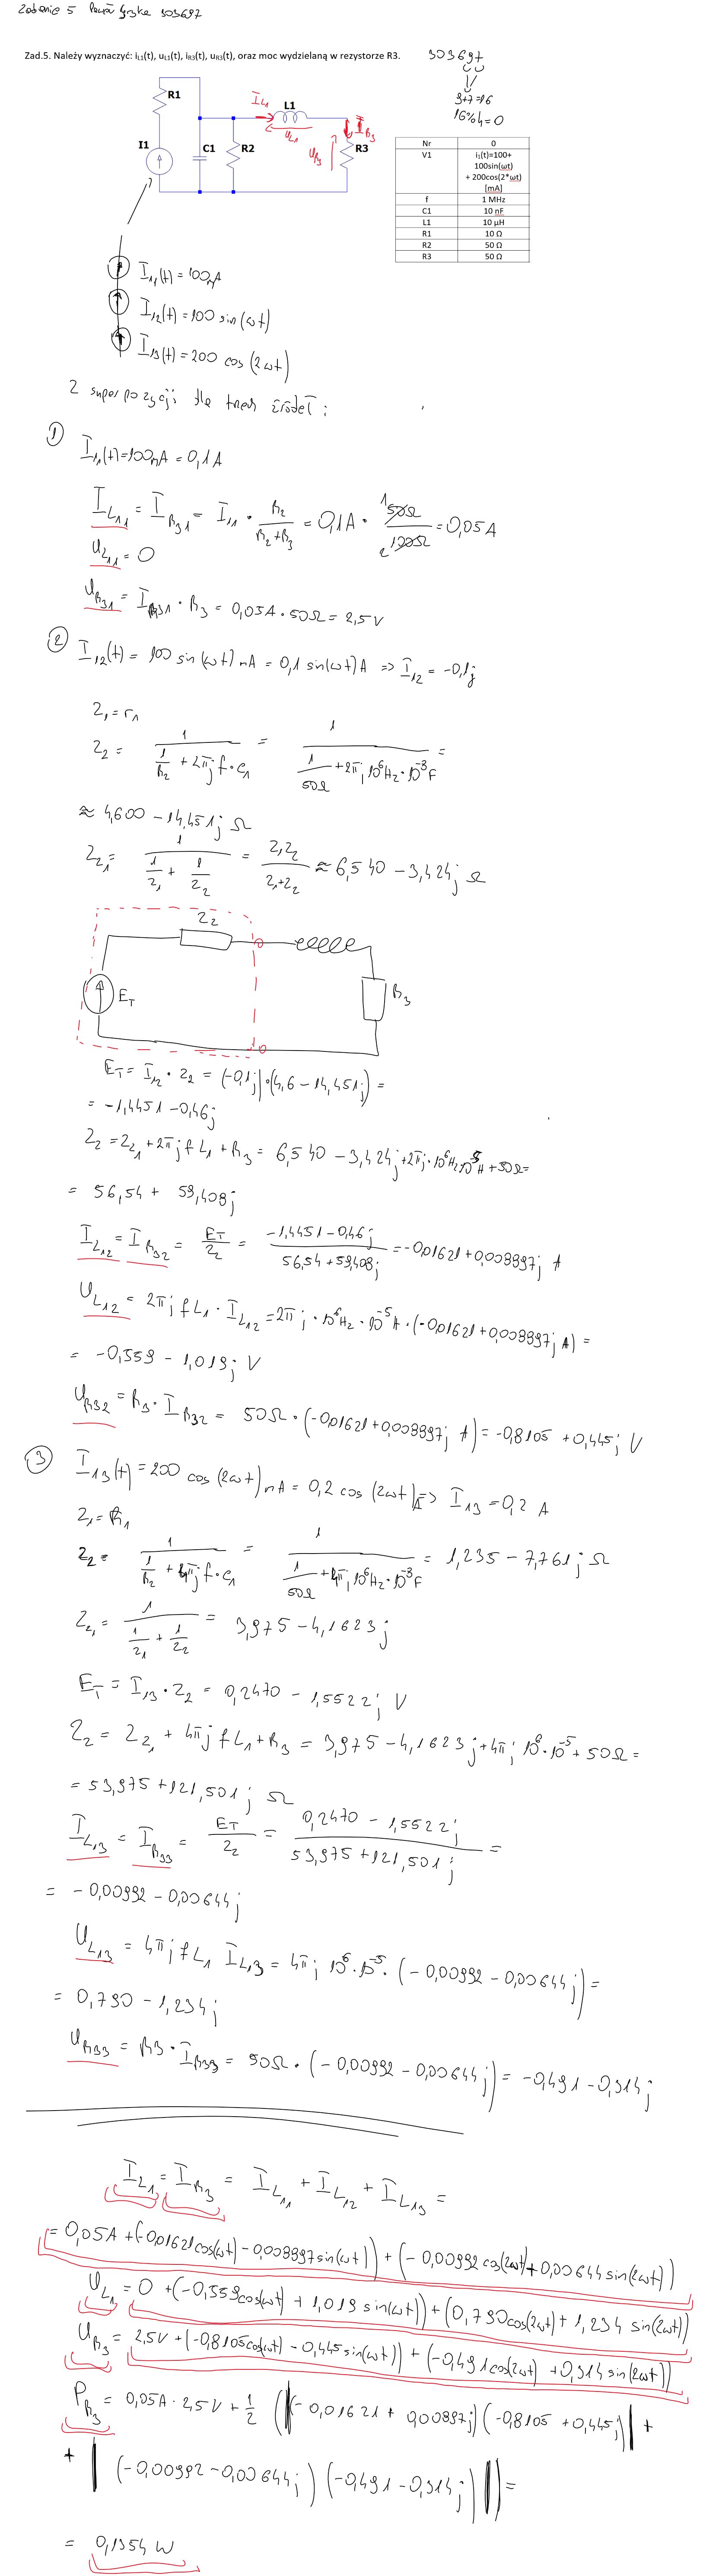 Zadanie 5 303697
Zad.5. Należy wyznaczyć: iL1(t), uL1(t), iR3(t), uR3(t), oraz moc wydzielaną w rezystorze R3.
303697
9+7=16
16%4=0
R1
I1
C1
R2
L1
R3
I_L1
U_L1
U_R3
I_R3
Nr 0
V1 i1(t)=100+
100sin(ωt)
+ 200cos(2*ωt)
[mA]
f 1 MHz
C1 10 nF
L1 10 μH
R1 10 Ω
R2 50 Ω
R3 50 Ω
I_11(t) = 100mA
I_12(t) = 100 sin(ωt)
I_13(t) = 200 cos(2ωt)
Z superpozycji dla trzech źródeł:
① I_11(t)=100mA = 0,1A
I_L11 = I_R31 = I_11 · R2/(R2+R3) = 0,1A · 50Ω/100Ω = 0,05A
U_L11 = 0
U_R31 = I_R31 · R3 = 0,05A · 50Ω = 2,5V
② I_12(t) = 100 sin(ωt) mA = 0,1 sin(ωt) A => I_12 = -0,1j
Z1 = r1
Z2 = 1/(1/R2 + 2πj f·C1) = 1/(1/50Ω + 2πj 10^6Hz·10^-3F) =
≈ 4,600 - 14,451j Ω
Z_Z1 = 1/(1/Z1 + 1/Z2) = Z1Z2/(Z1+Z2) ≈ 6,540 - 3,424j Ω
Z2
E_T
R3
E_T = I_12 · Z2 = (-0,1j)·(4,6 - 14,451j) =
= -1,4451 - 0,46j
Z_Z = Z_Z1 + 2πj f L1 + R3 = 6,540 - 3,424j + 2πj·10^6Hz·10^-5H + 50Ω =
= 56,54 + 59,408j
I_L12 = I_R32 = E_T/Z_Z = (-1,4451 - 0,46j)/(56,54 + 59,408j) = -0,01621 + 0,008897j A
U_L12 = 2πj f L1 · I_L12 = 2πj · 10^6Hz · 10^-5H · (-0,01621 + 0,008897j A) =
= -0,559 - 1,019j V
U_R32 = R3 · I_R32 = 50Ω · (-0,01621 + 0,008897j A) = -0,8105 + 0,445j V
③ I_13(t) = 200 cos(2ωt) mA = 0,2 cos(2ωt) A => I_13 = 0,2 A
Z1 = R1
Z2 = 1/(1/R2 + 4πj f·C1) = 1/(1/50Ω + 4πj 10^6Hz·10^-3F) = 1,235 - 7,761j Ω
Z_Z1 = 1/(1/Z1 + 1/Z2) = 3,975 - 4,1623j
E_T = I_13 · Z2 = 0,2470 - 1,5522j V
Z_Z = Z_Z1 + 4πj f L1 + R3 = 3,975 - 4,1623j + 4πj 10^6·10^-5 + 50Ω =
= 53,975 + 121,501j Ω
I_L13 = I_R33 = E_T/Z_Z = (0,2470 - 1,5522j)/(53,975 + 121,501j) =
= -0,00992 - 0,00644j
U_L13 = 4πj f L1 I_L13 = 4πj 10^6·10^-5·(-0,00992 - 0,00644j) =
= 0,790 - 1,234j
U_R33 = R3 · I_R33 = 50Ω · (-0,00992 - 0,00644j) = -0,491 - 0,314j
I_L1 = I_R3 = I_L11 + I_L12 + I_L13 =
= 0,05A + (-0,01621cos(ωt) - 0,008897sin(ωt)) + (-0,00992 cos(2ωt) + 0,00644 sin(2ωt))
U_L1 = 0 + (-0,559cos(ωt) + 1,019 sin(ωt)) + (0,790cos(2ωt) + 1,234 sin(2ωt))
U_R3 = 2,5V + (-0,8105cos(ωt) - 0,445sin(ωt)) + (-0,491cos(2ωt) + 0,314 sin(2ωt))
P_R3 = 0,05A · 2,5V + 1/2 (|(-0,01621 + 0,00897j)(-0,8105 + 0,445j)| +
+ |(-0,00992 - 0,00644j)(-0,491 - 0,314j)|) =
= 0,1354 W